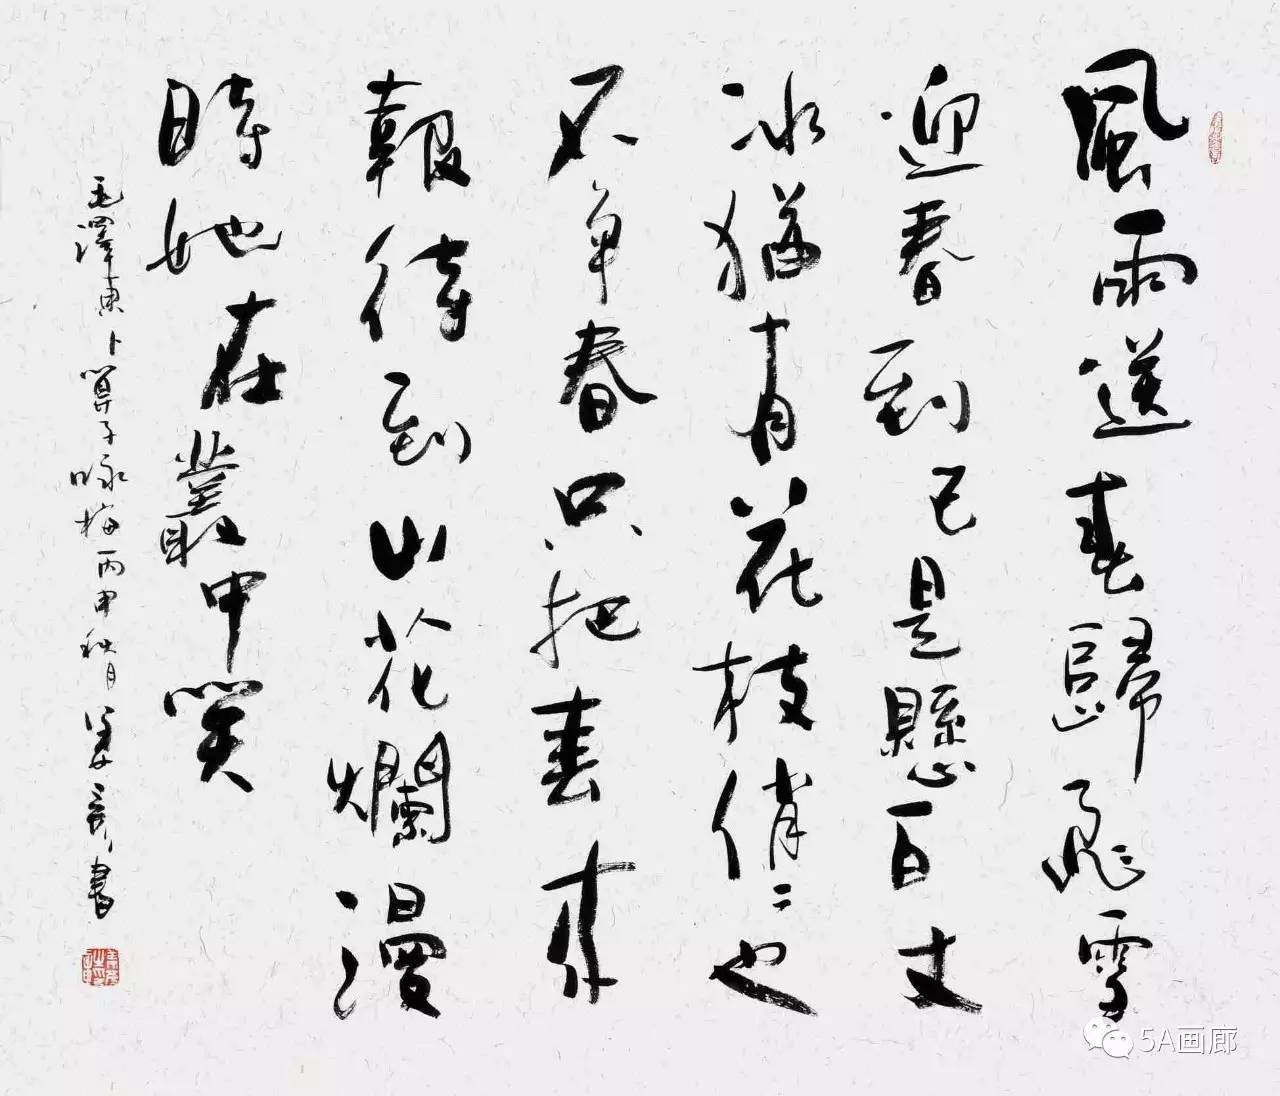 風雨送春歸飛雪
迎春到已是懸百丈
冰猶有花枝俏〻也
不争春只把春来
報待到山花爛漫
時她在叢中笑
毛澤東卜算子咏梅丙申秋月書
5A画廊